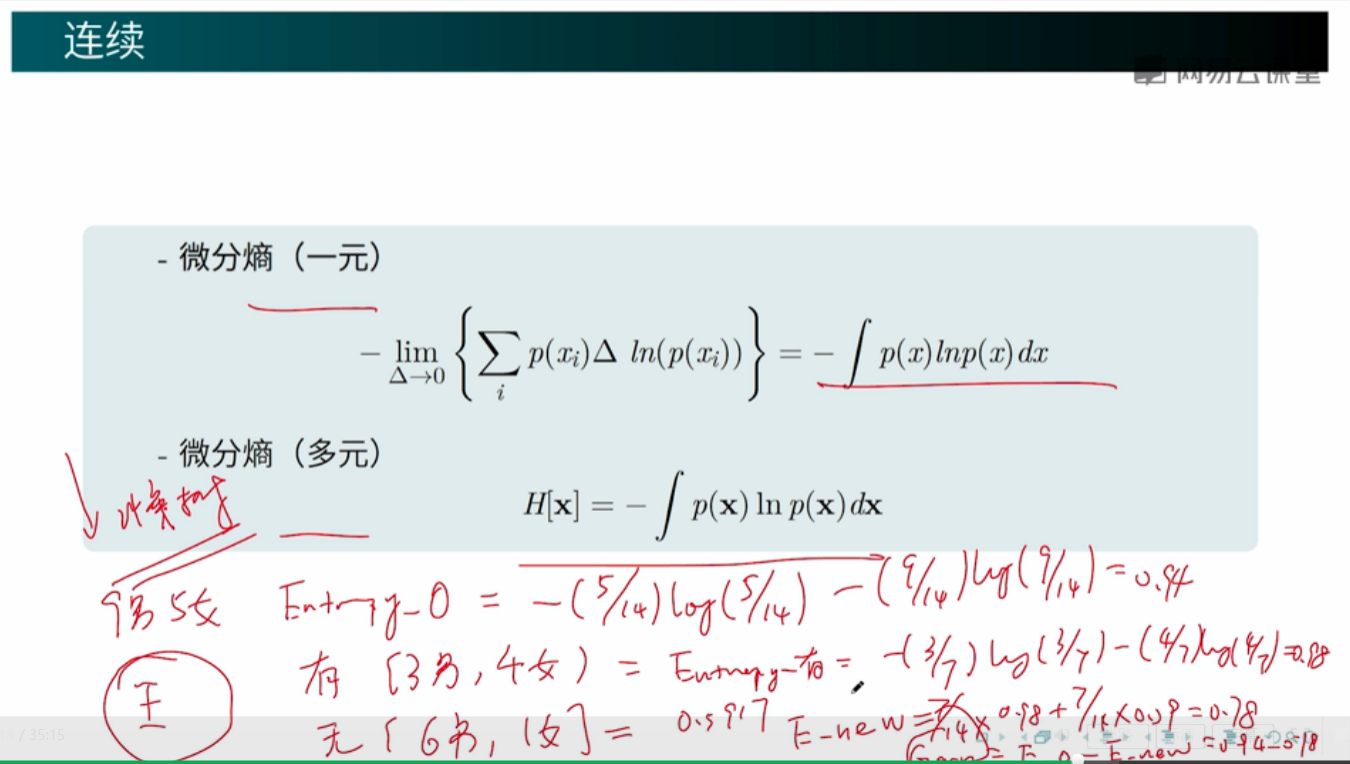 连续
网易云课堂
- 微分熵（一元）
− lim Δ→0 { ∑ i p(xᵢ)Δ ln(p(xᵢ)) } = − ∫ p(x)lnp(x)dx
- 微分熵（多元）
H[x] = − ∫ p(x) ln p(x)dx
决策树
9男5女 Entropy_0 = -(5/14)log(5/14) -(9/14)log(9/14) = 0.94
有 [3男, 4女) = Entropy_有 = -(3/7)log(3/7)-(4/7)log(4/7)=0.98
王
无 [6男, 1女] = 0.5917 E_new = 7/14 × 0.98 + 7/14 × 0.59 = 0.78
/ 35:15
E_0 - E_new = 0.94-0.78